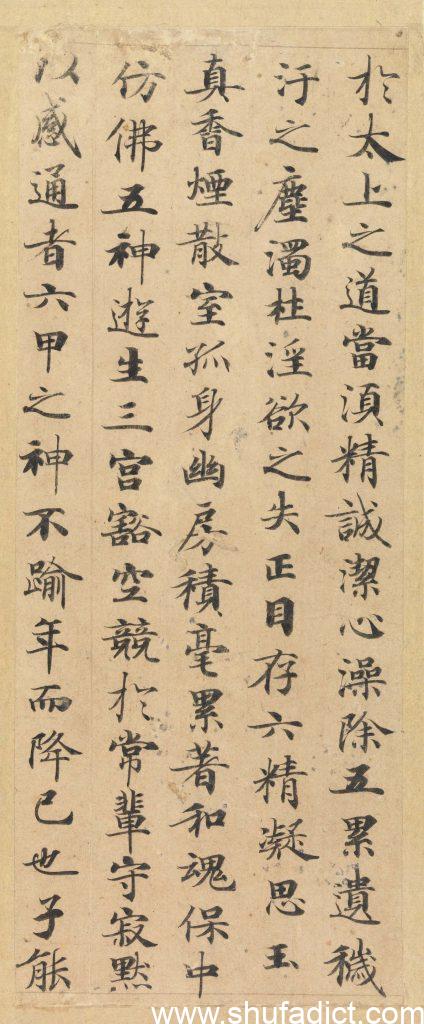 於太上之道當須精誠潔心澡除五累遺穢
汙之塵濁杜淫欲之失正目存六精凝思玉
真香煙散室孤身幽房積毫累著和魂保中
仿佛五神遊生三宮豁空競於常輩守寂默
以感通者六甲之神不踰年而降己也子能
www.shufadict.com